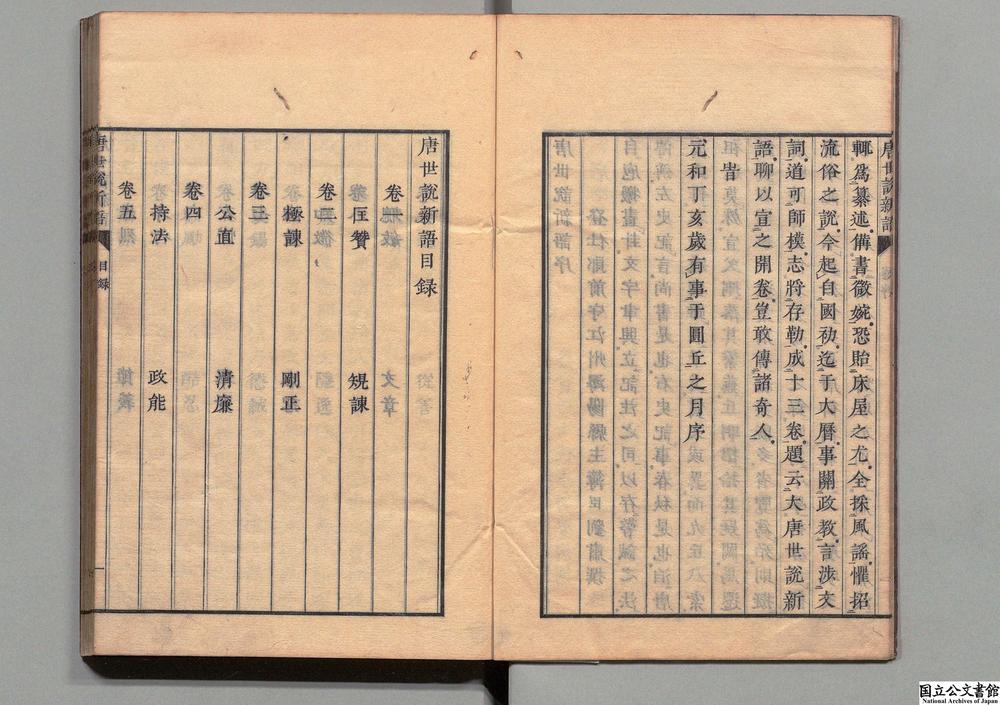 輙爲纂述備書微婉恐貽床屋之尤全採風謠懼招
流俗之說今起自國初迄于大曆事關政教言涉文
詞道可師模志將存勒成十三卷題云大唐世說新
語聊以宣之開卷豈敢傳諸奇人
元和丁亥歲有事于圓丘之月序
唐世說新語
唐世說新語目録
卷一
匡贊 規諫
卷二
極諫 剛正
卷三
公直 清廉
卷四
持法 政能
卷五
唐世說新語 目録
国立公文書館
National Archives of Japan